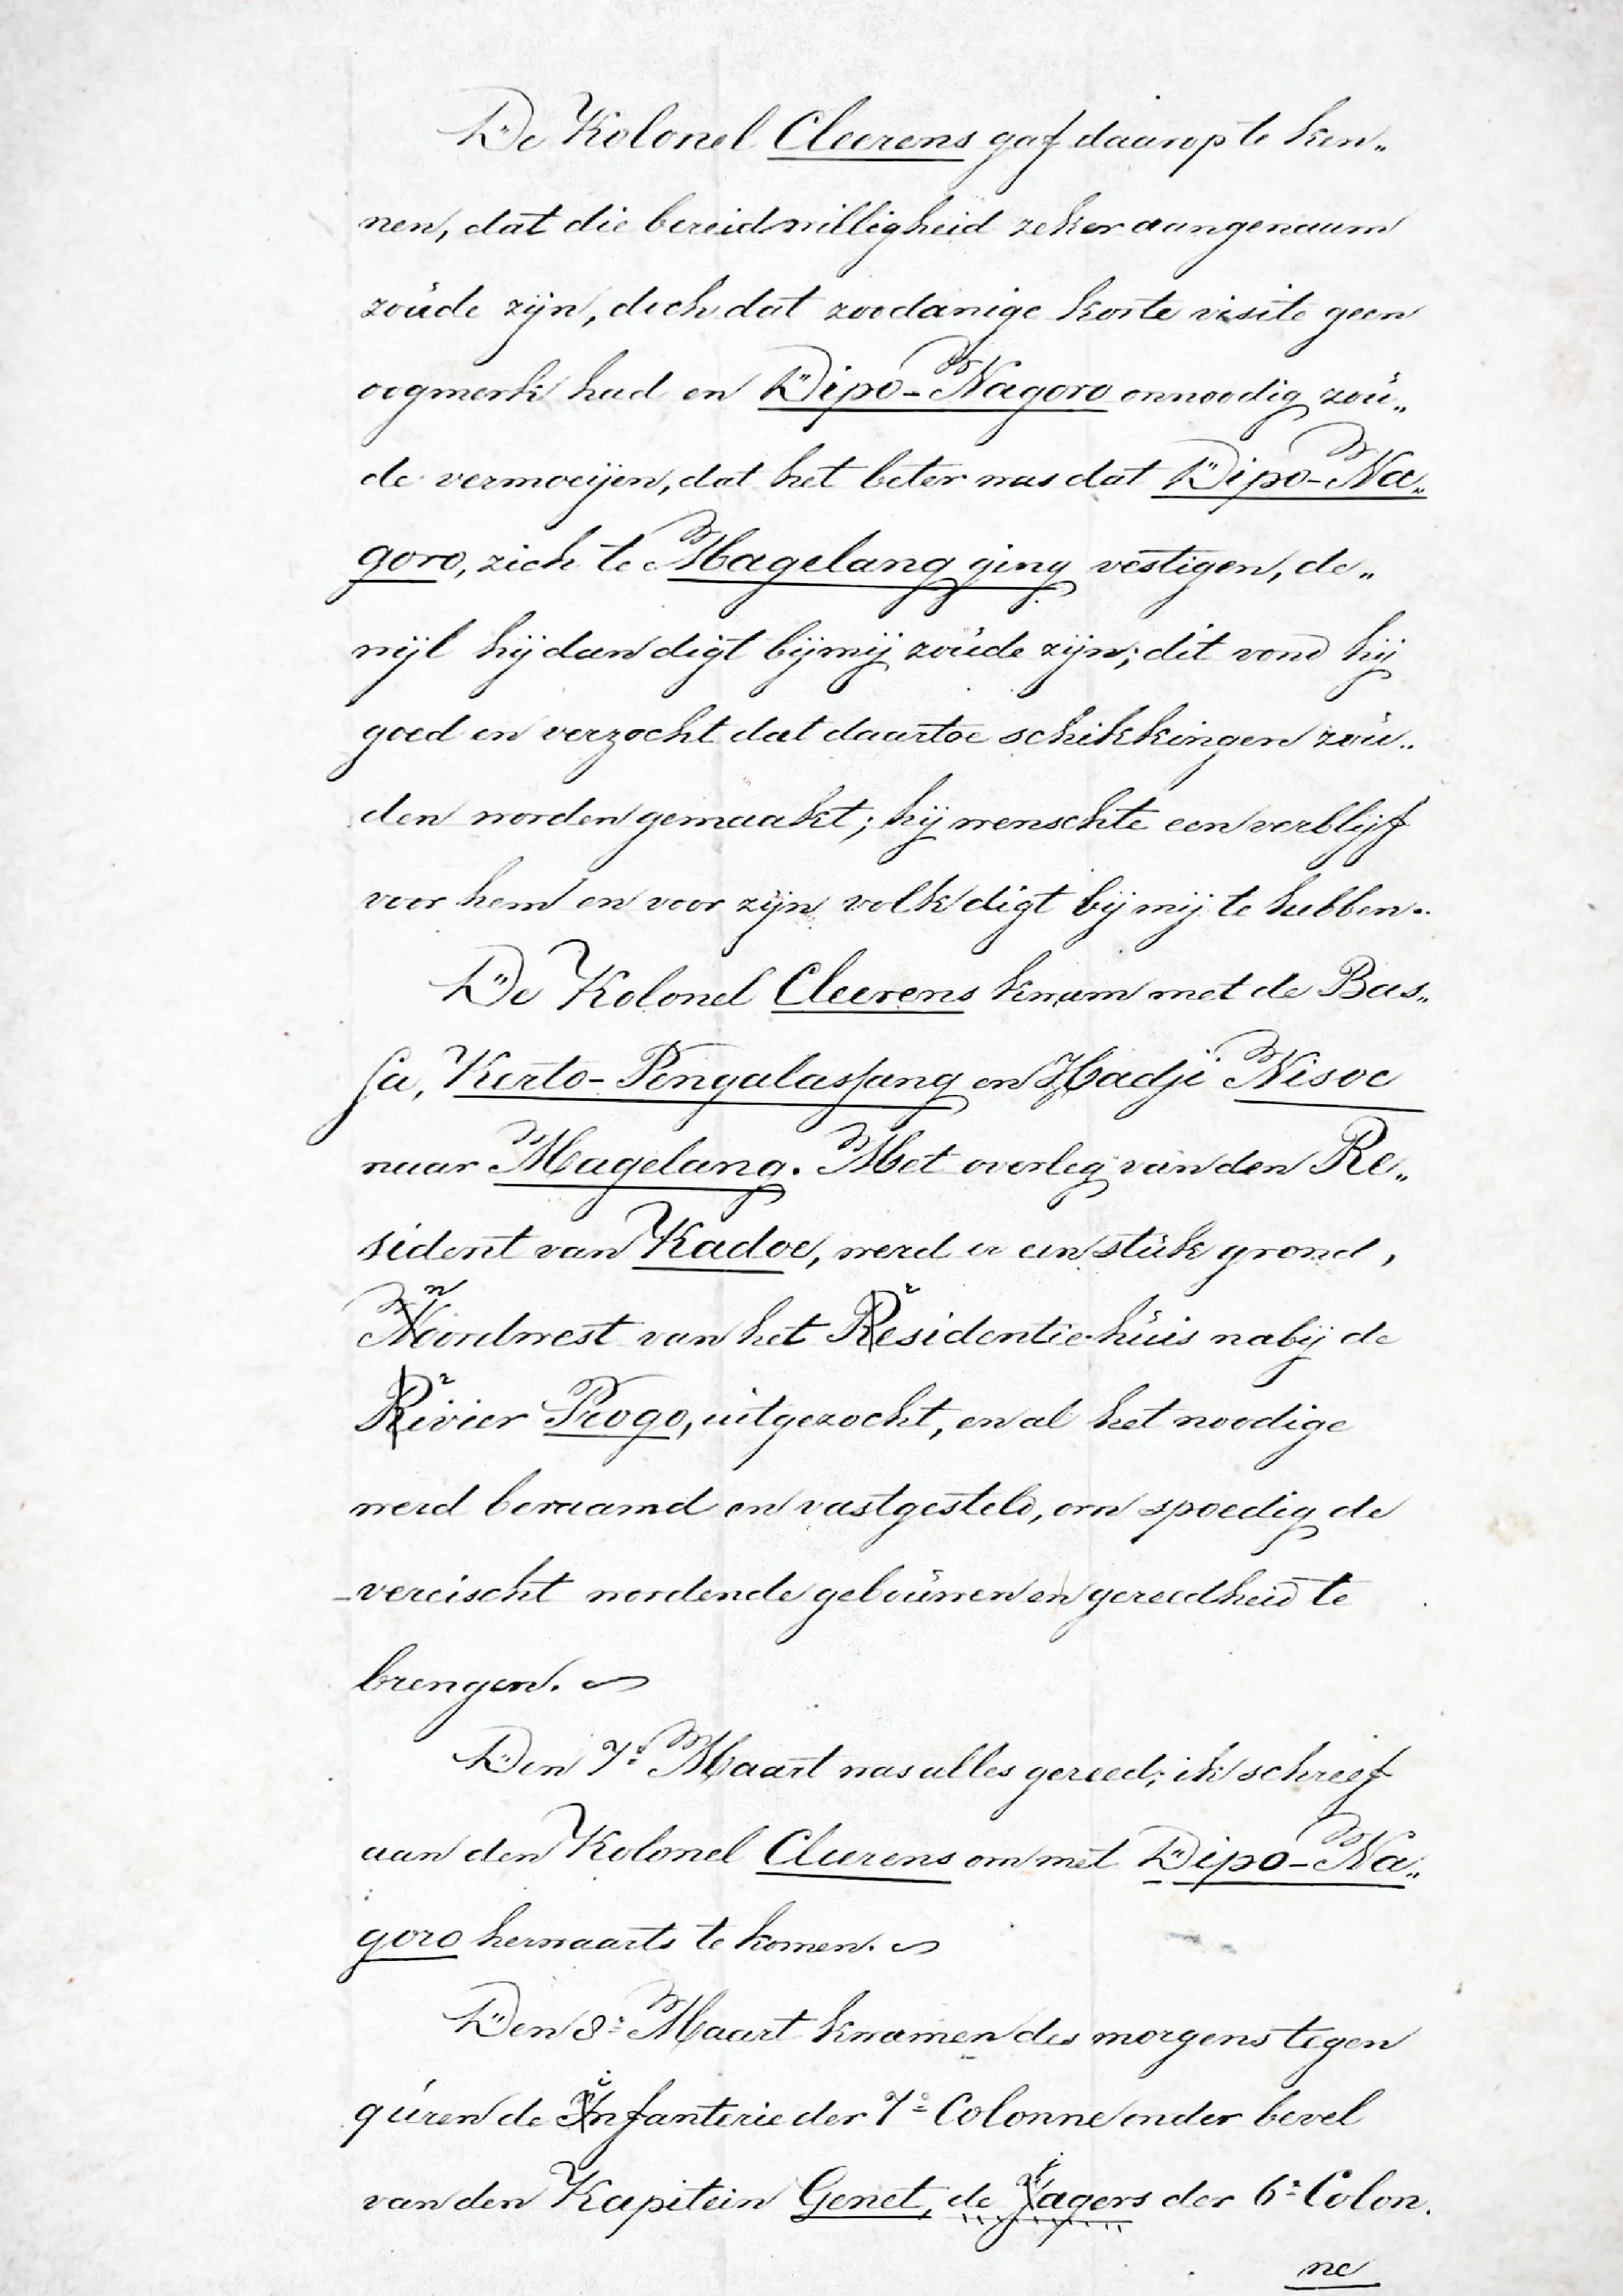 De Kolonel Cleerens gaf daarop te ken„
nen, dat die bereidwilligheid zeker aangenaam
zoude zijn, doch dat zoodanige korte visite geen
oogmerk had en Dipo-Nagoro onnoodig zou„
de vermoeijen, dat het beter was dat Dipo-Na„
goro, zich te Magelang ging vestigen, de„
wijl hij dan digt bij mij zoude zijn; dit vond hij
goed en verzocht dat daartoe schikkingen zou„
den worden gemaakt; hij wenschte een verblijf
voor hem en voor zijn volk digt bij mij te hebben.
De Kolonel Cleerens kwam met de Bas„
sa, Kerto-Pengalassang en Hadji Nisoe
naar Magelang. Met overleg van den Re„
sident van Kadoe, werd er een stuk grond,
noordwest van het residentie-huis nabij de
rivier Progo, uitgezocht, en al het noodige
werd beraamd en vastgesteld, om spoedig de
vereischt wordende gebouwen in gereedheid te
brengen.
Den 7e Maart was alles gereed; ik schreef
aan den Kolonel Cleerens om met Dipo-Na„
goro herwaarts te komen.
Den 8e Maart kwamen des morgens tegen
9 uren de infanterie der 7e Colonne onder bevel
van den Kapitein Genet, de jagers der 6e Colon.
ne